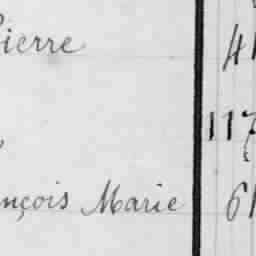 Pierre 41
117
nçois Marie 61